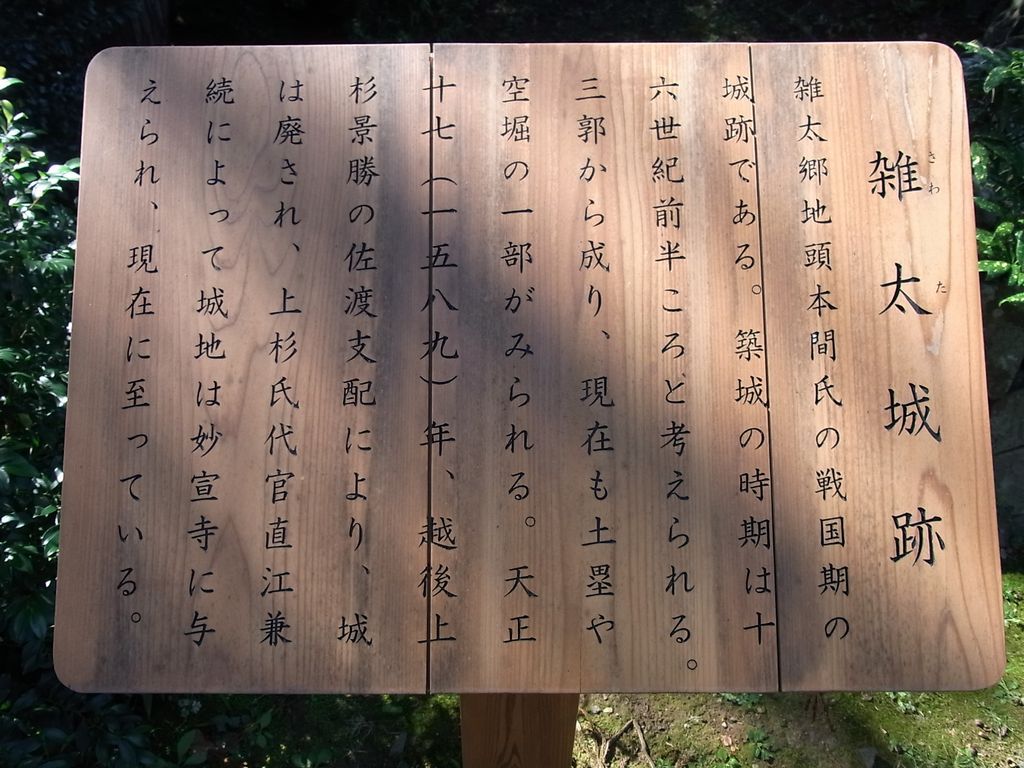 雑太城跡
さわた
雑太郷地頭本間氏の戦国期の
城跡である。築城の時期は十
六世紀前半ころと考えられる。
三郭から成り、現在も土塁や
空堀の一部がみられる。天正
十七(一五八九)年、越後上
杉景勝の佐渡支配により、城
は廃され、上杉氏代官直江兼
続によって城地は妙宣寺に与
えられ、現在に至っている。